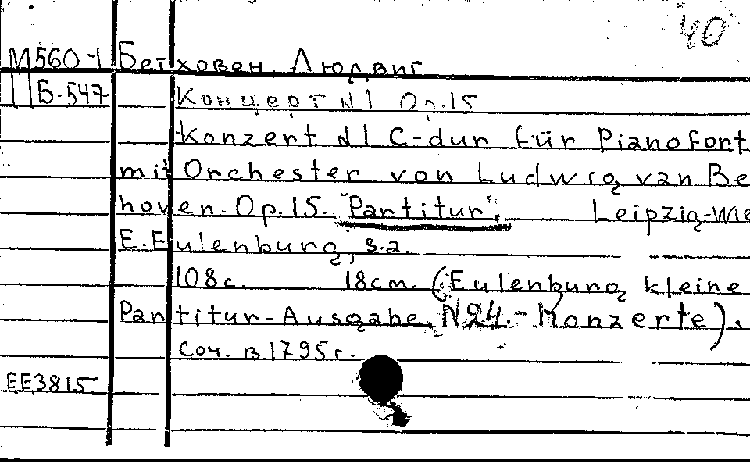 40
М560-1 Бетховен Людвиг
Б-547 Концерт N1 Op.15
Konzert N1 C-dur für Pianofort
mit Orchester von Ludwig van Be
hoven. Op.15. "Partitur". Leipzig-Wie
E. Eulenburg, s.a.
108 с. 18 cm. (Eulenburg kleine
Partitur-Ausgabe N24.- Konzerte).
Соч. в 1795 г.
EE3815